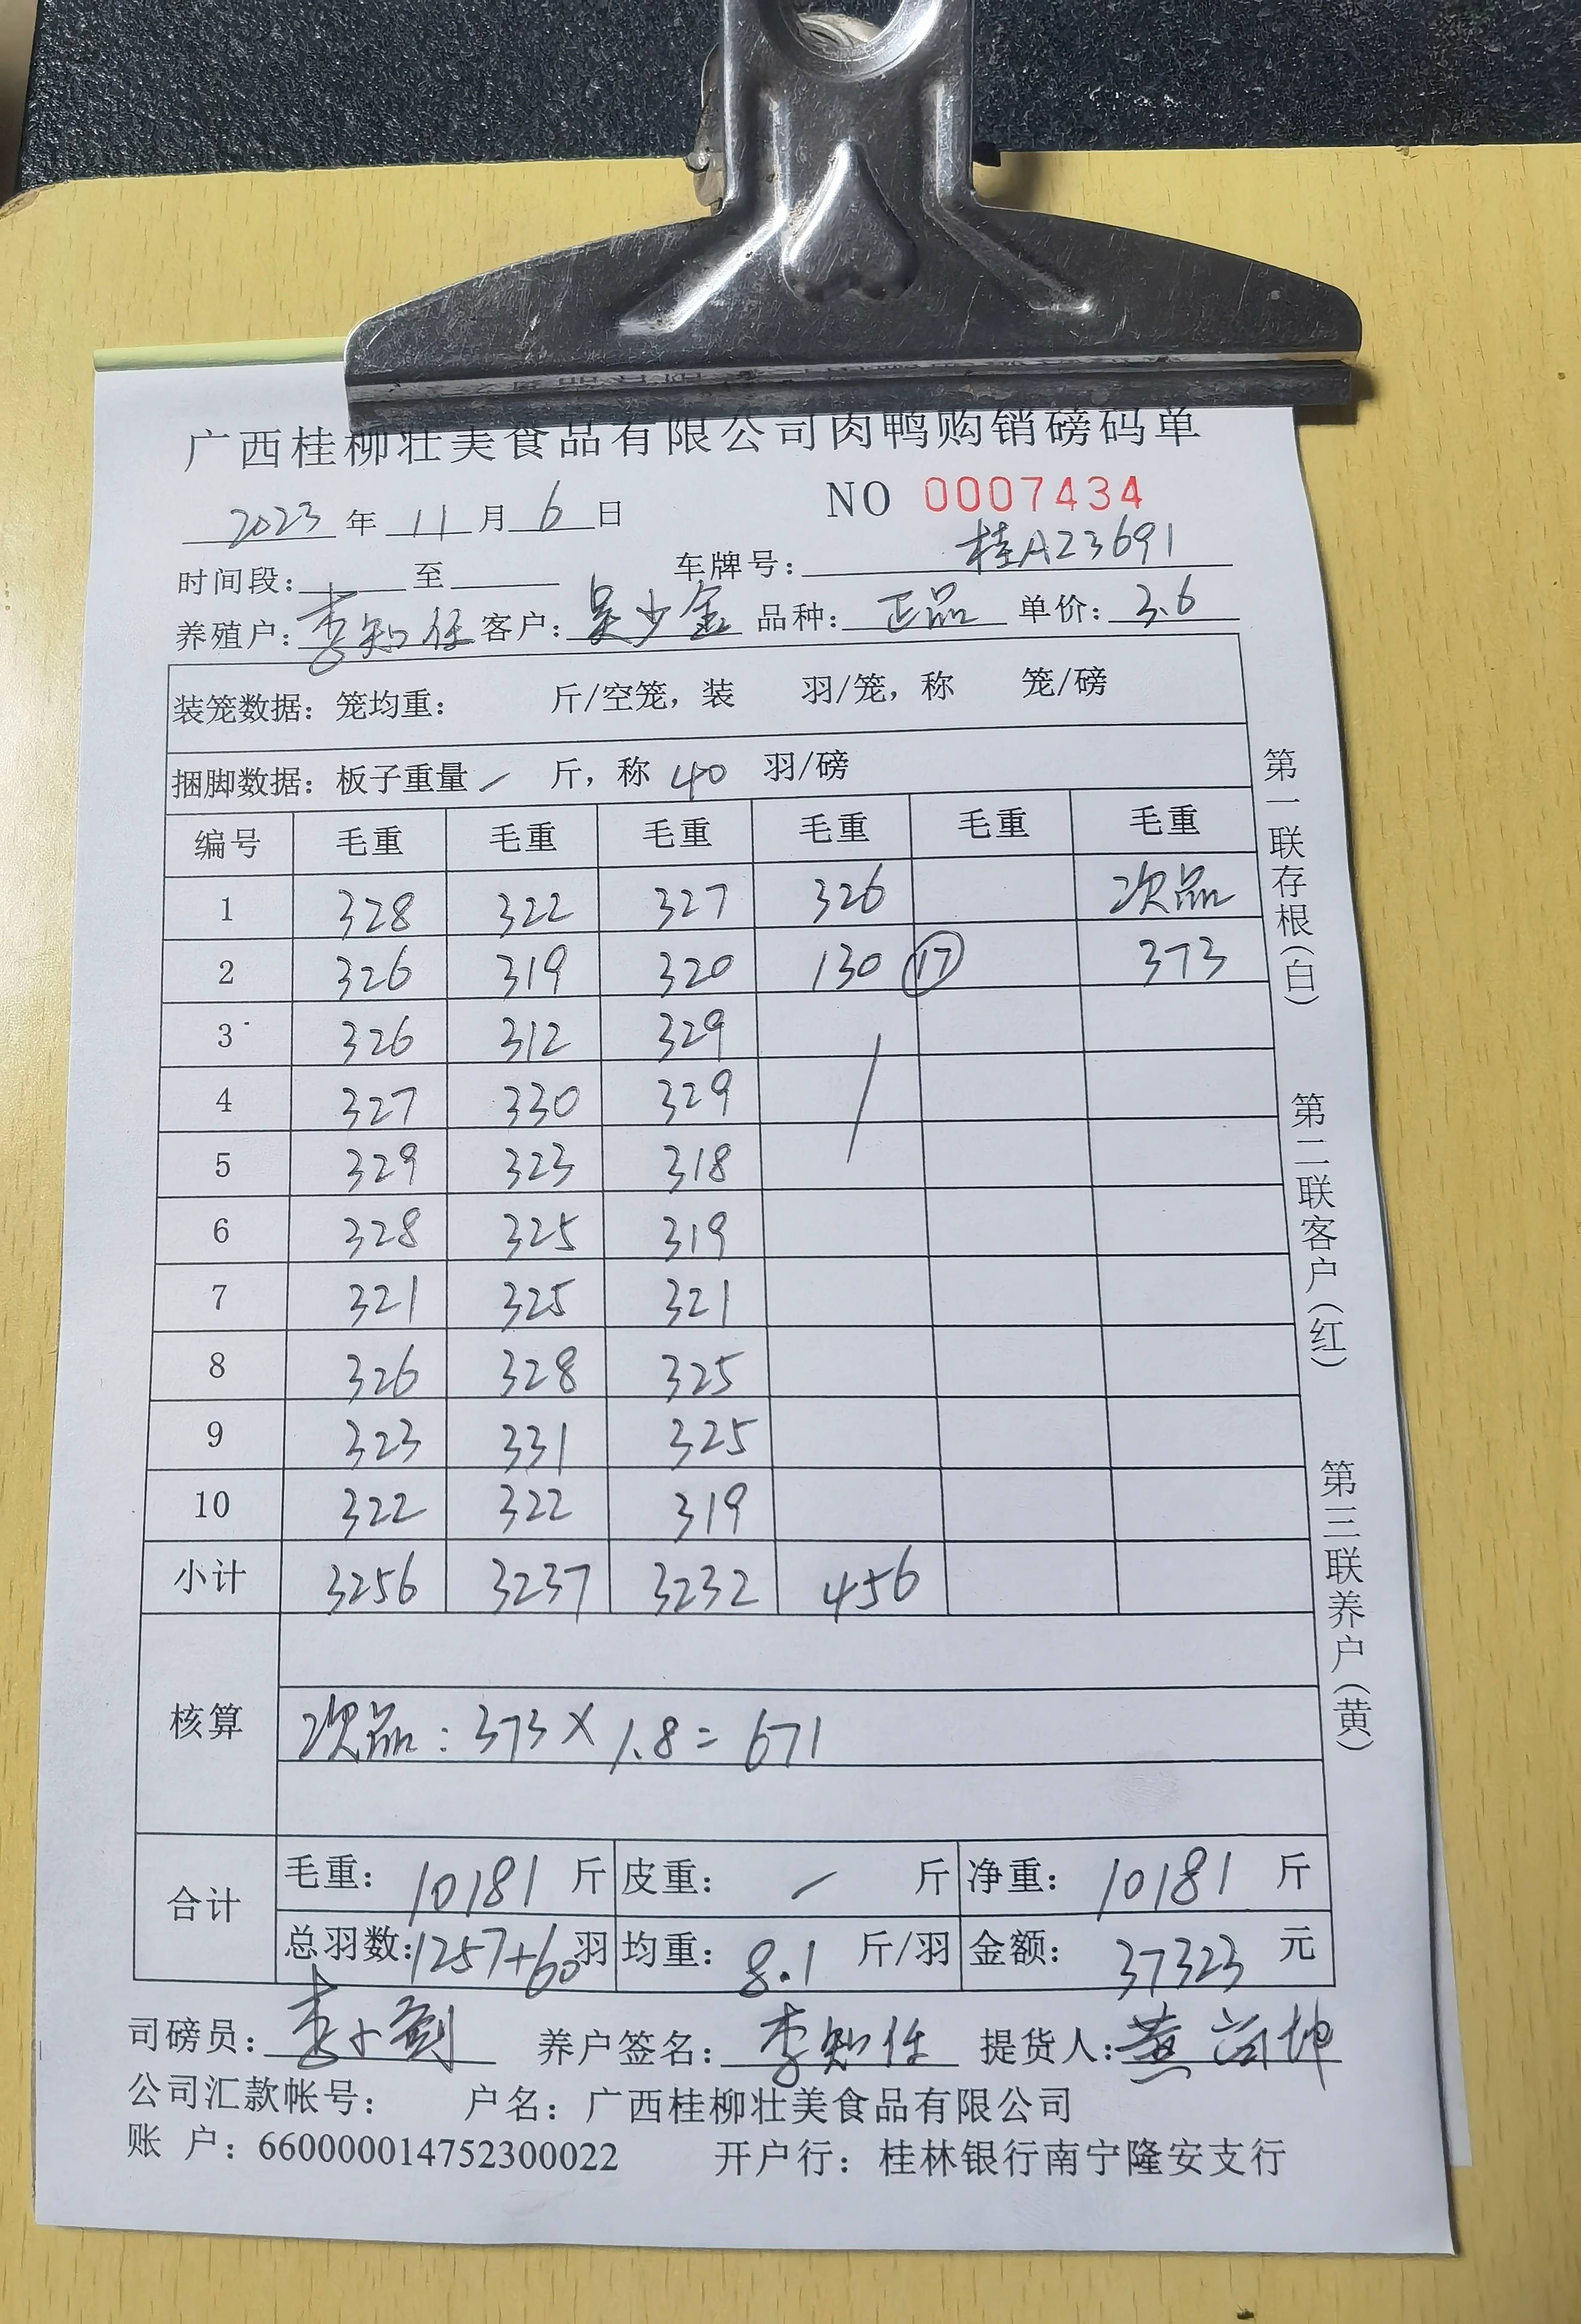 广西桂柳壮美食品有限公司肉鸭购销磅码单
NO 0007434
2023 年 11 月 6 日
时间段: 至 车牌号: 桂A23691
养殖户: 李知任 客户: 吴少金 品种: 正品 单价: 3.6
装笼数据: 笼均重: 斤/空笼, 装 羽/笼, 称 笼/磅
捆脚数据: 板子重量 / 斤, 称 40 羽/磅
编号 毛重 毛重 毛重 毛重 毛重 毛重
1 328 322 327 326 次品
2 326 319 320 130 ⑰ 373
3 326 312 329
4 327 330 329
5 329 323 318
6 328 325 319
7 321 325 321
8 326 328 325
9 323 331 325
10 322 322 319
小计 3256 3237 3232 456
核算
次品: 373 × 1.8 = 671
合计
毛重: 10181 斤 皮重: / 斤 净重: 10181 斤
总羽数: 1257+60 羽 均重: 8.1 斤/羽 金额: 37323 元
司磅员: 李小剑 养户签名: 李知任 提货人: 黄
公司汇款帐号: 户名: 广西桂柳壮美食品有限公司
账 户: 660000014752300022 开户行: 桂林银行南宁隆安支行
第一联存根(白)
第二联客户(红)
第三联养户(黄)